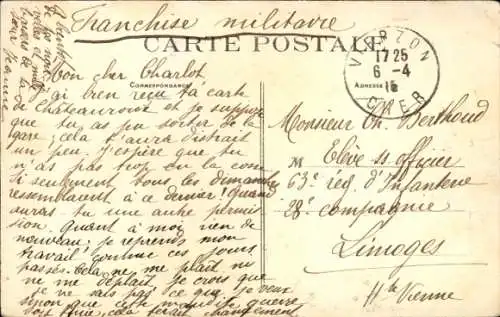 Franchise militaire
CARTE POSTALE
CORRESPONDANCE
ADRESSE
VIERZON
17 25
6-4
15
CHER
Mon cher Charlot
J'ai bien reçu ta carte
de Châteauroux et je suppose
que tu as pu sortir de la
gare; cela t'aura distrait
un peu. J'espère que tu
n'as pas trop eu la
Si seulement tous les dimanches
ressemblaient à ce dernier! Quand
auras-tu une autre permis
sion. Quant à moi rien de
nouveau; je reprends mon
travail comme ces jours
passés. Cela ne me plaît ni
ne me déplaît je crois que
je ne sais pas ce que je veux
sinon que cette maudite guerre
soit finie; cela ferait changement
de tes nouvelles
Jeanne
Monsieur Ch. Berthoud
M Elève ss officier
63e rég. d'Infanterie
28e compagnie
Limoges
Hte Vienne